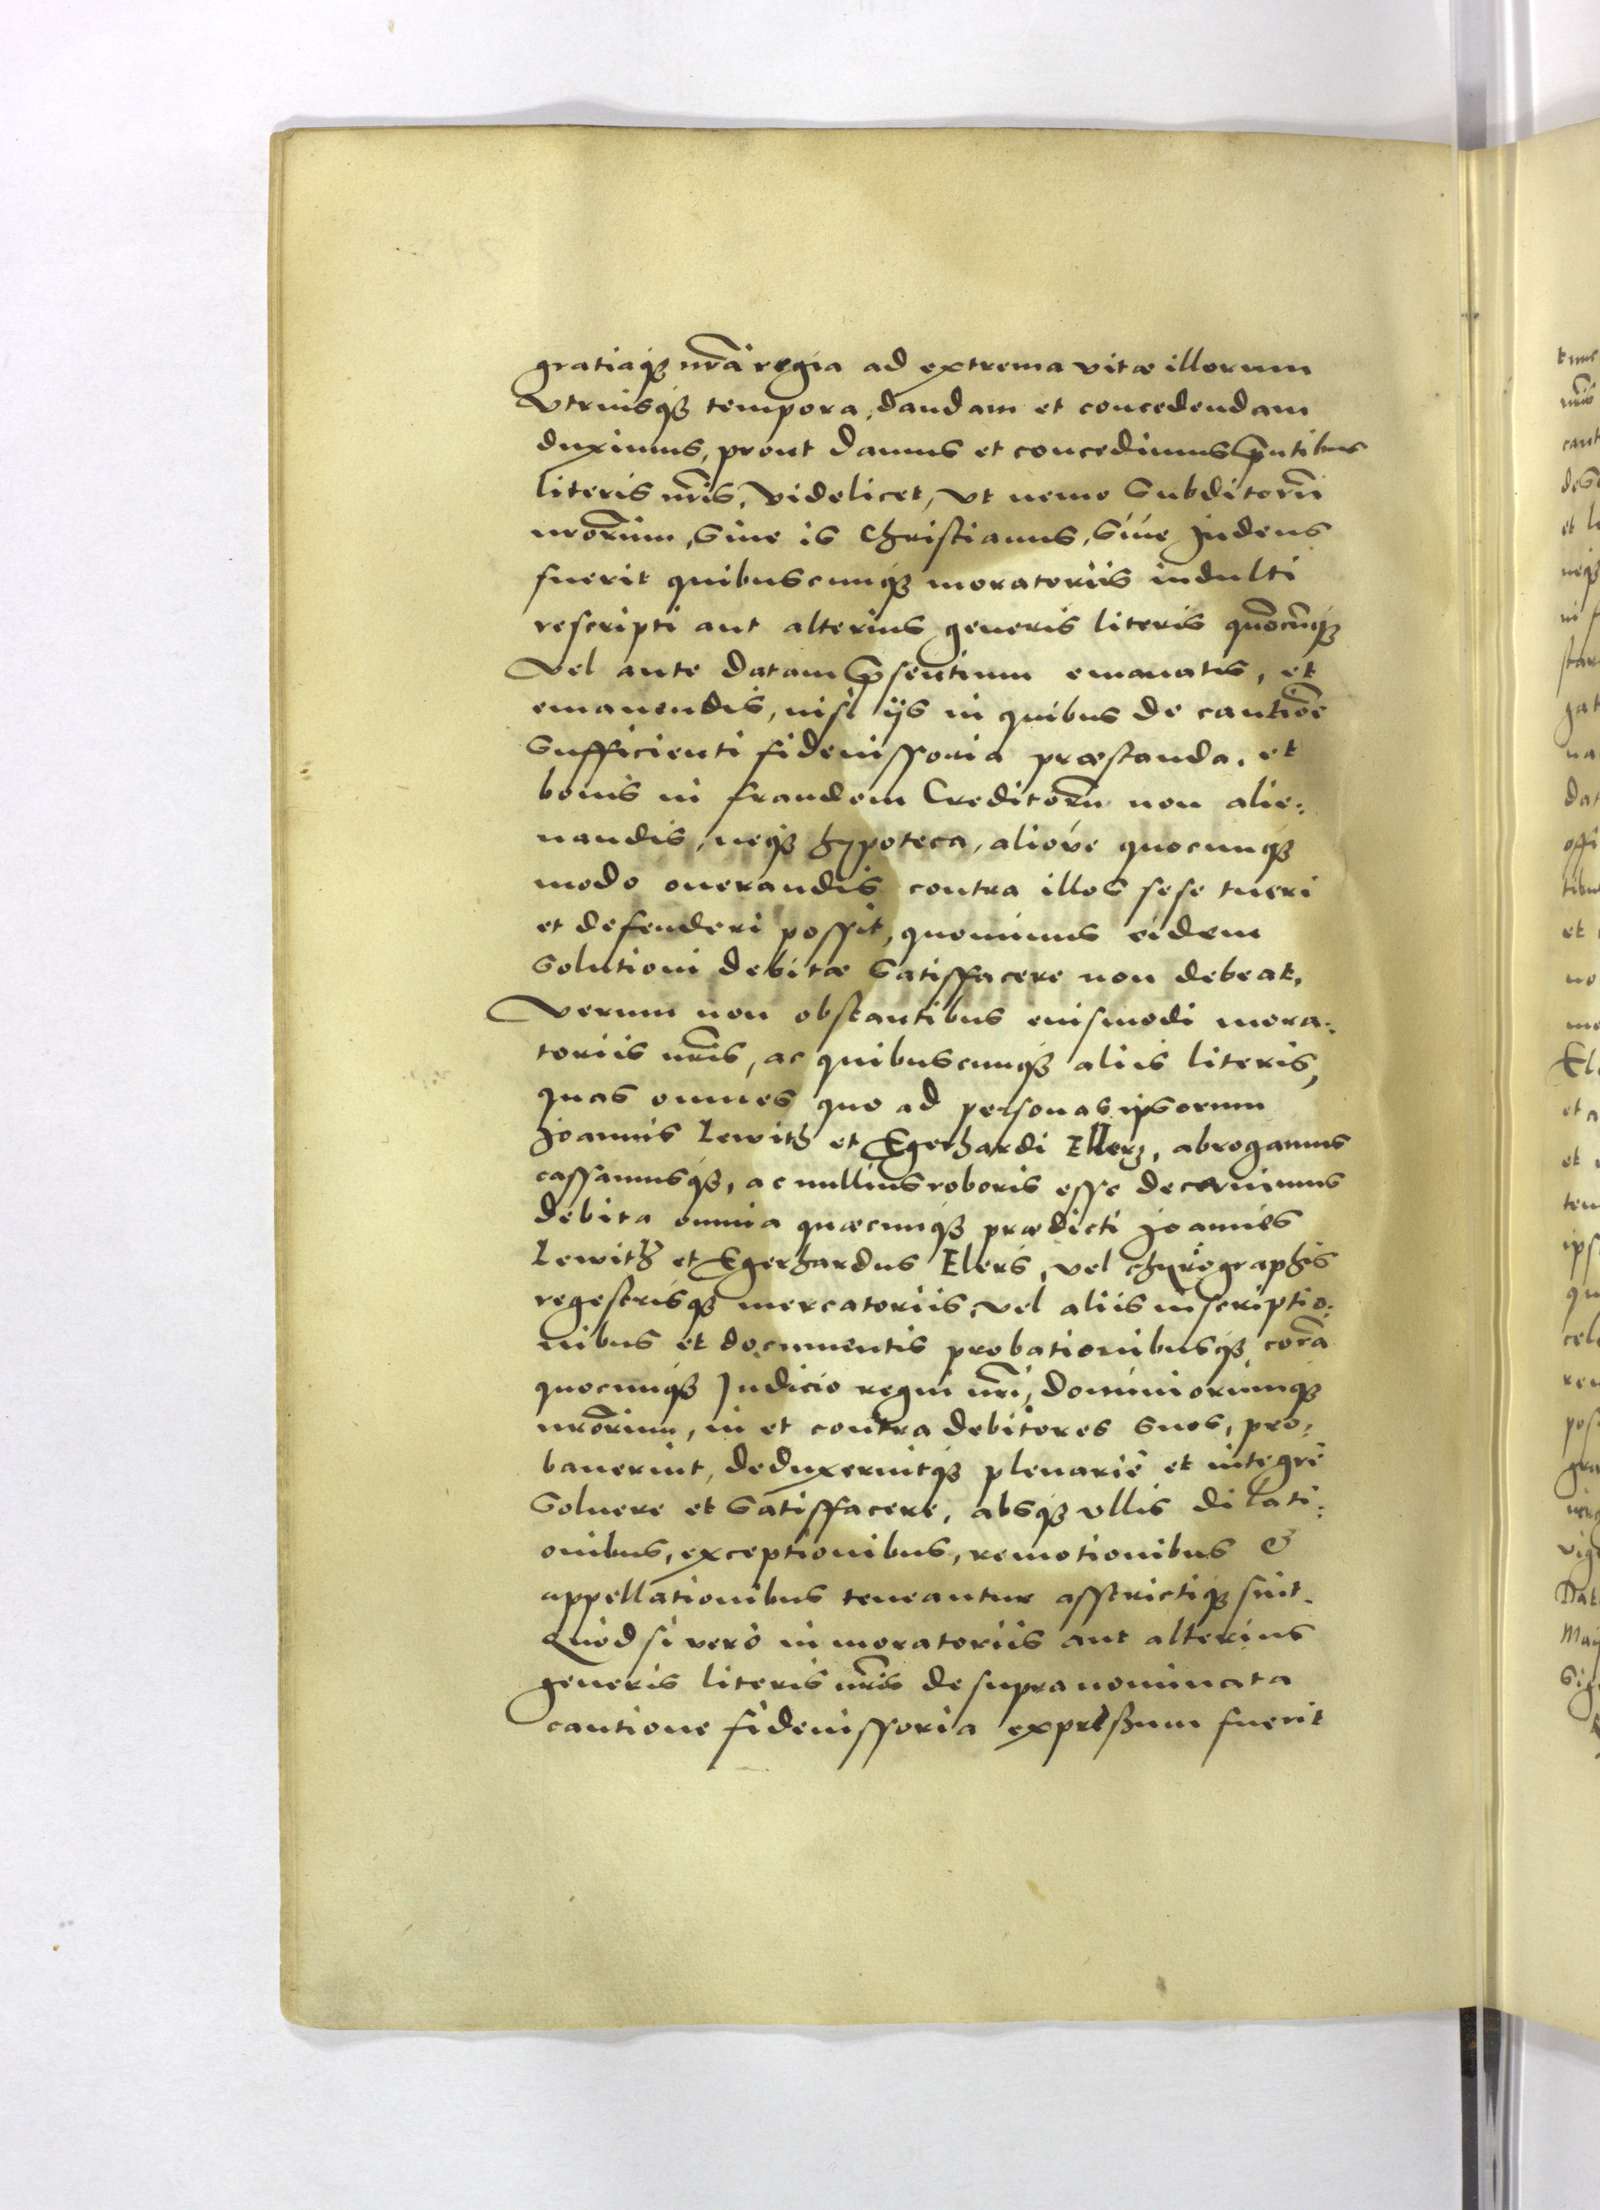 gratiaq₃ nr̃a regia ad extrema vitæ illorum
vtriusq₃ tempora, dandam et concedendam
duximus, prout damus et concedimus p̃ntibus
literis nr̃is, videlicet, vt nemo subditorũ
nrõrum, siue is Christianus, siue Judeus
fuerit quibuscunq₃ moratoriis indulti
rescripti aut alterius generis literis quõcũq₃
vel ante datam p̃sentium emanatis, et
emanendis, nisi ijs in quibus de cautiõe
sufficienti fideiussoria præstanda, et
bonis in fraudem Creditorũ non alie:
nandis, neq₃ hypoteca, alióve quocunq₃
modo onerandis contra illos sese tueri
et defenderi possit, quominus eidem
solutioni debitæ satisffacere non debeat,
Verum non obstantibus eiusmodi mora:
toriis nr̃is, ac quibuscunq₃ aliis literis,
quas omnes quo ad personas ipsorum
Joannis Lewith et Egerhardi Ellerz, abrogamus
cassamusq₃, ac nullius roboris esse decernimus
debita omnia quæcunq₃ prædicti Joannes
Lewith et Egerhardus Elers, vel chyrographis
regestrisq₃ mercatoriis, vel aliis inscriptio:
nibus et documentis probationibusq₃ corã
quocunq₃ Judicio regni nr̃i, dominiorumq₃
nrõrum, in et contra debitores suos, pro:
bauerint, deduxerintq₃ plenariè et integrè
soluere et satisffacere, absq₃ vllis dilati:
onibus, exceptionibus, remotionibus &
appellationibus teneantur asstrictiq₃ sint.
Quòd si verò in moratoriis aut alterius
generis literis nr̃is de supra nominata
cautione fideiussoria expressum fuerit